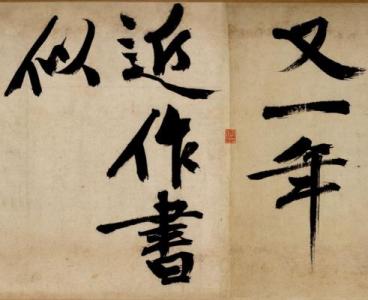 又一年
近作書
似